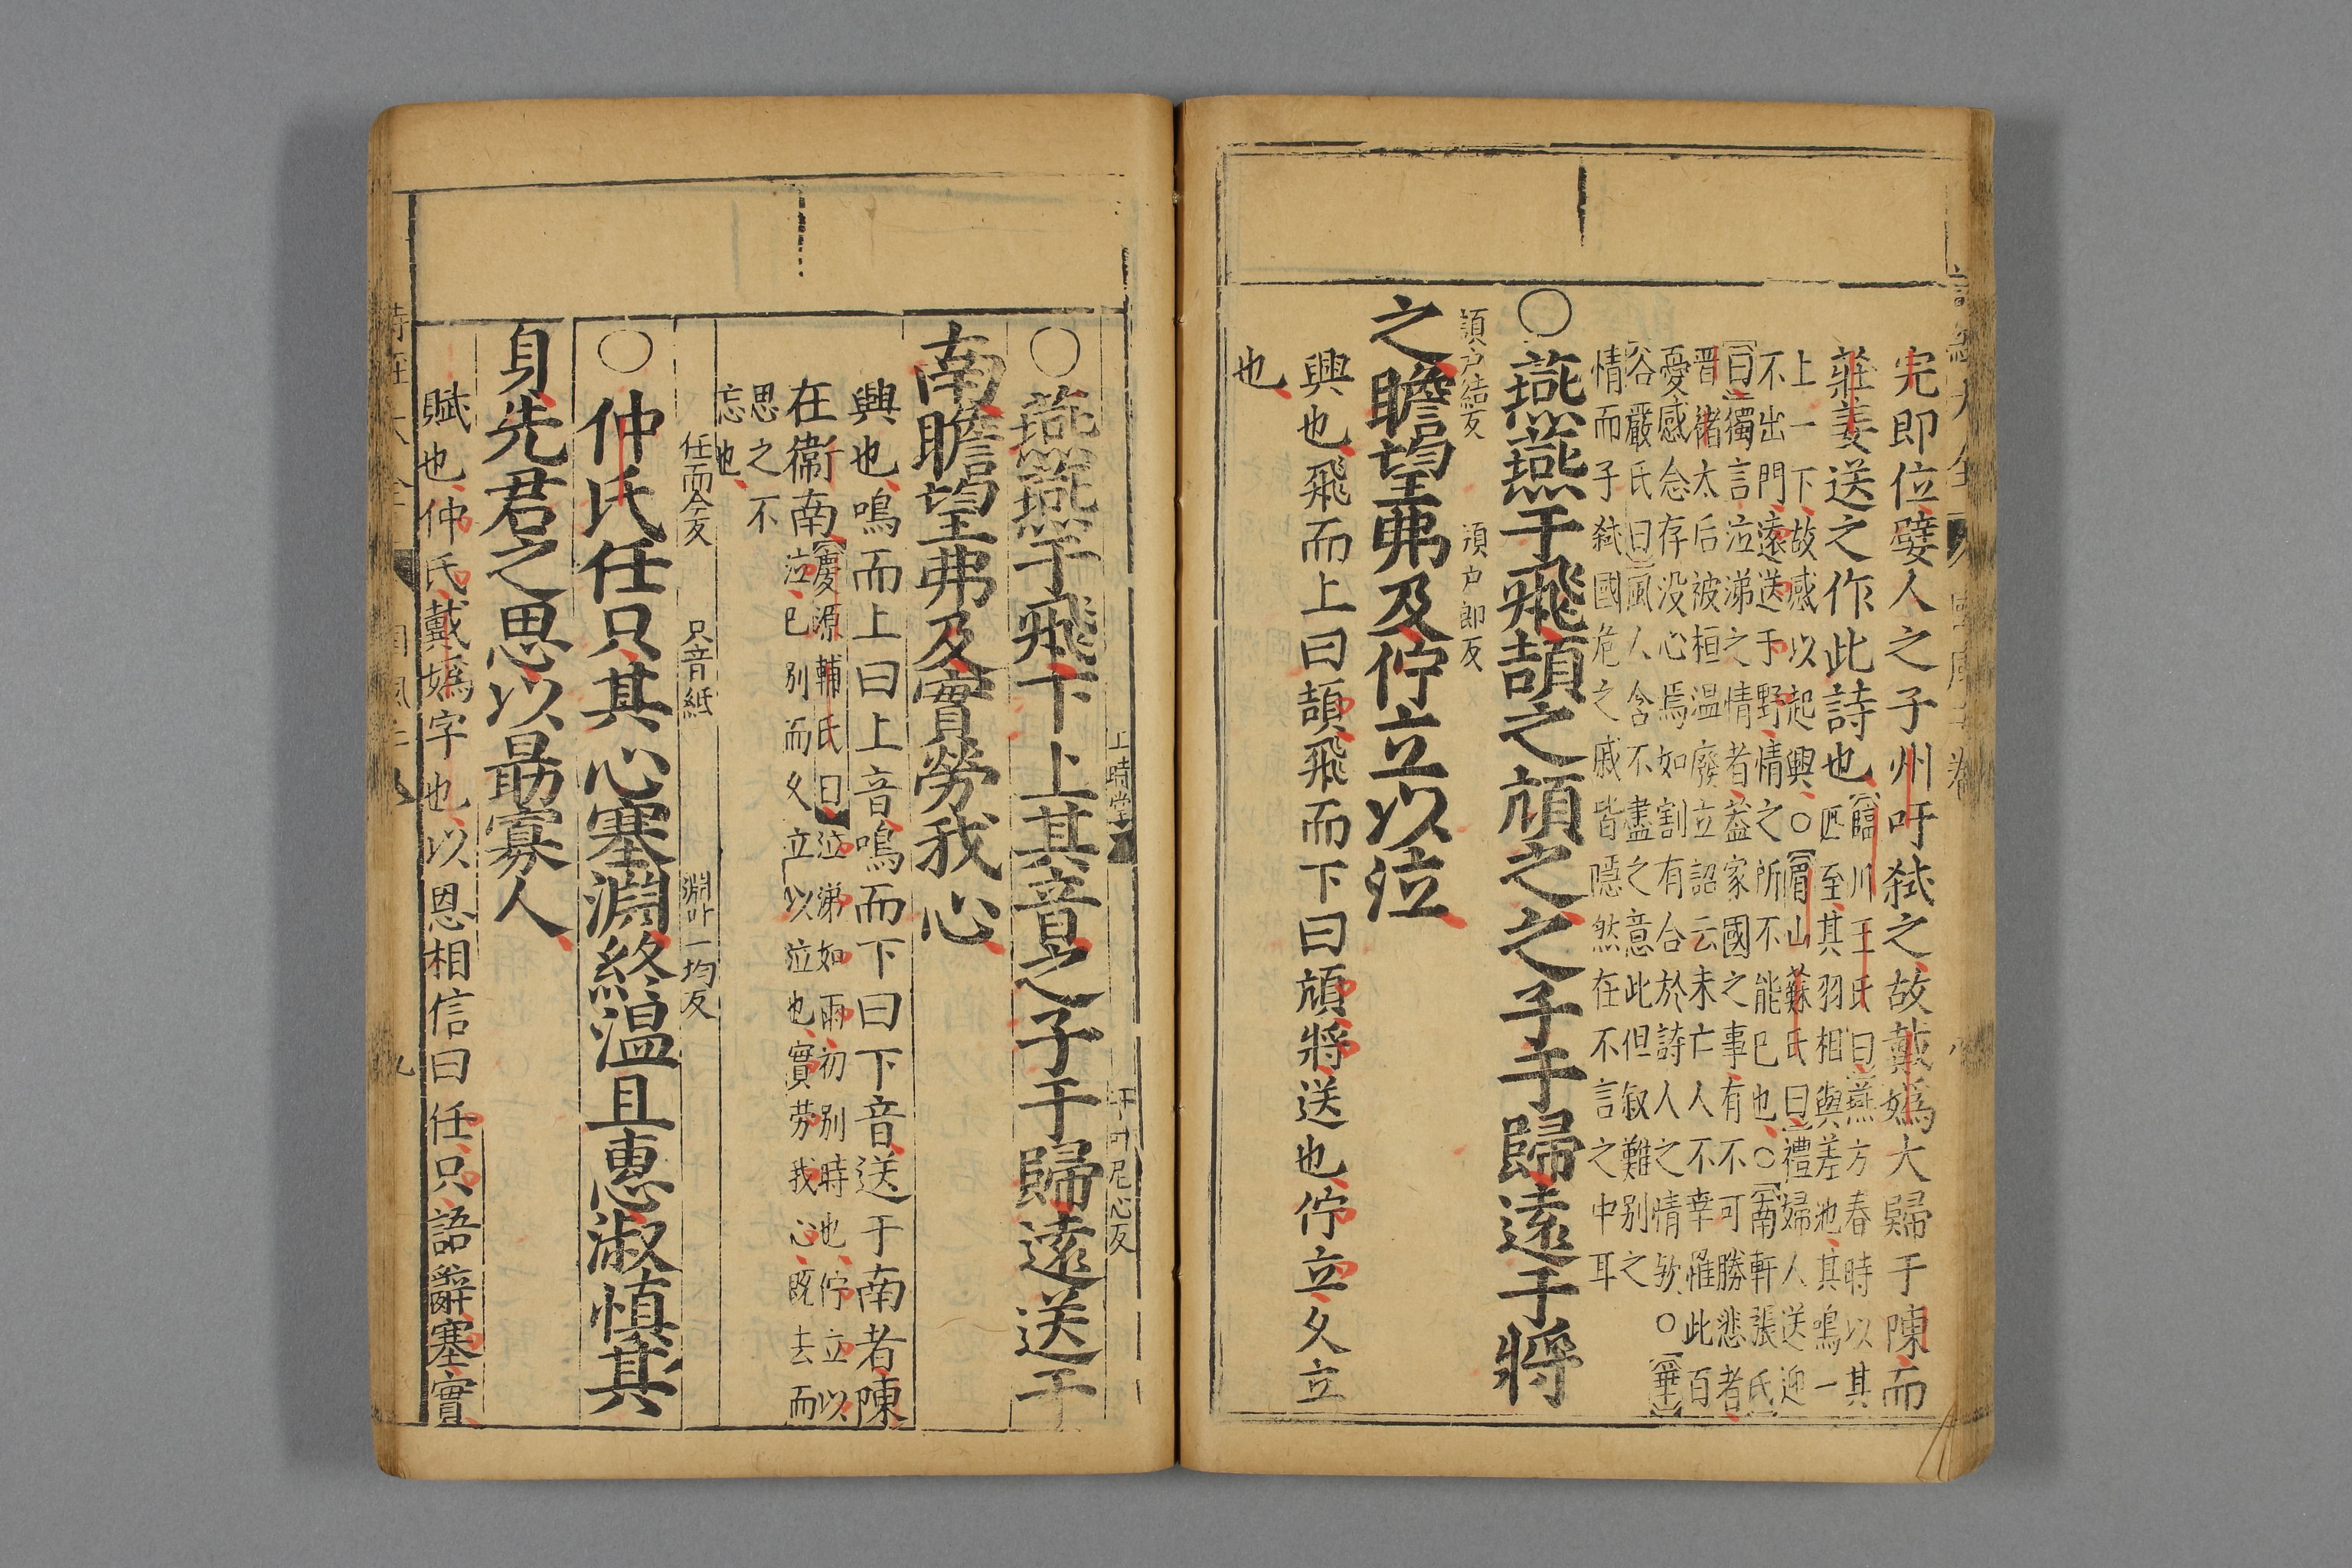 完即位嬖人之子州吁弑之故戴嬀大歸于陳而
莊姜送之作此詩也
臨川王氏曰燕方春時以其
匹至其羽相與差池其鳴一
上一下故感以起興○眉山蘇氏曰禮婦人送迎
不出門遠送于野情之所不能已也○南軒張氏
曰獨言泣涕之情者蓋家國之事有不可勝悲者
晋褚太后被桓温廢立詔云未亡人不幸罹此百
憂感念存没心焉如割有合於詩人之情欤○華
谷嚴氏曰風人含不盡之意此但叙難别之
情而子弑國危之戚皆隱然在不言之中耳
○燕燕于飛頡之頏之之子于歸遠于將
頡户結反 頏户郎反
之瞻望弗及佇立以泣
興也飛而上曰頡飛而下曰頏將送也佇立久立
也
上時掌 南叶尼心反
○燕燕于飛下上其音之子于歸遠送于
南瞻望弗及實勞我心
興也鳴而上曰上音鳴而下曰下音送于南者陳
在衞南
慶源輔氏曰泣涕如雨初别時也佇立以
泣已别而久立以泣也實劳我心既去而
思之不
忘也
任而今反 只音紙 淵叶一均反
○仲氏任只其心塞淵終温且惠淑慎其
身先君之思以勗寡人
賦也仲氏戴嬀字也以恩相信曰任只語辭塞實